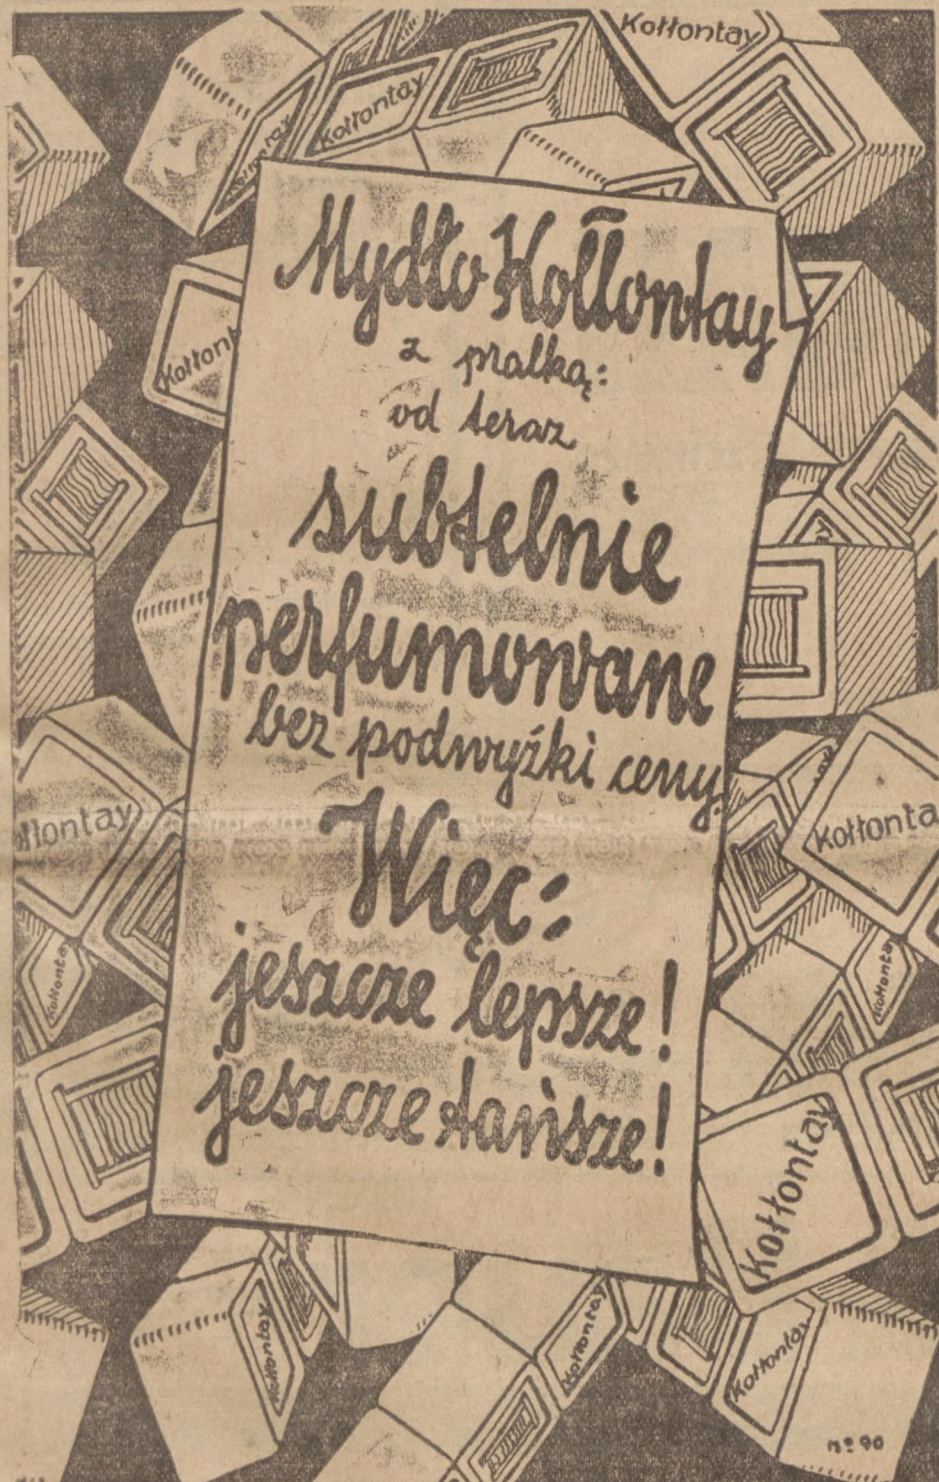 Kołłontay
Kołłontay
Kołłontay
Mydło Kołłontay
z pralką:
od teraz
subtelnie
perfumowane
bez podwyżki ceny.
Więc:
jeszcze lepsze!
jeszcze tańsze!
Kołłont
łłontay
Kołłonta
Kołłontay
Kołłonta
Kołłontay
Kołłontay
Kołłontay
Kołłontay
nº 90